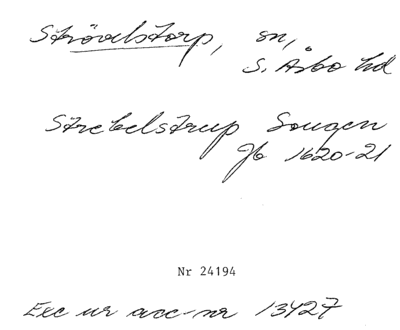 Strövelstorp, sn,
S. Åsbo hd
Strebelstrup Sougen
Jb 1620-21
Nr 24194
Exc ur acc-nr 13427